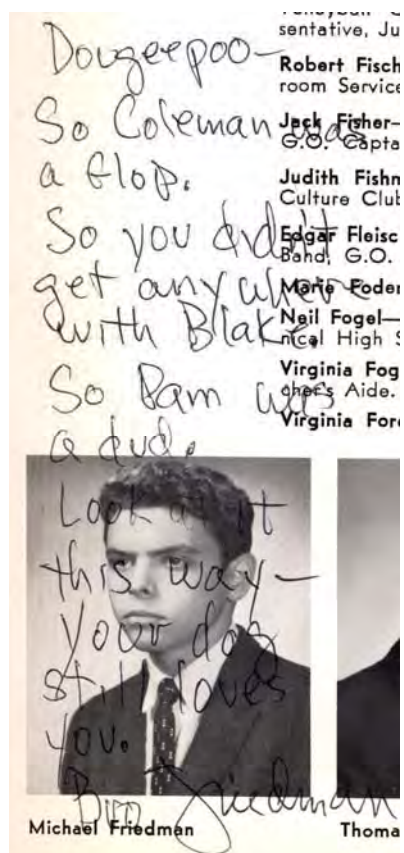 Dougeepoo—
So Coleman was
a flop.
So you didn't
get anywhere
with Blake.
So Pam was
a dud.
Look at it
this way—
your dog
still loves
you.
Friedman
sentative, Ju
Robert Fisch
room Service
Jack Fisher—
G.O. Capta
Judith Fishm
Culture Club
Edgar Fleisc
Band, G.O.
Marie Foder
Neil Fogel—
nical High S
Virginia Fog
cher's Aide.
Virginia Fore
Michael Friedman
Thoma